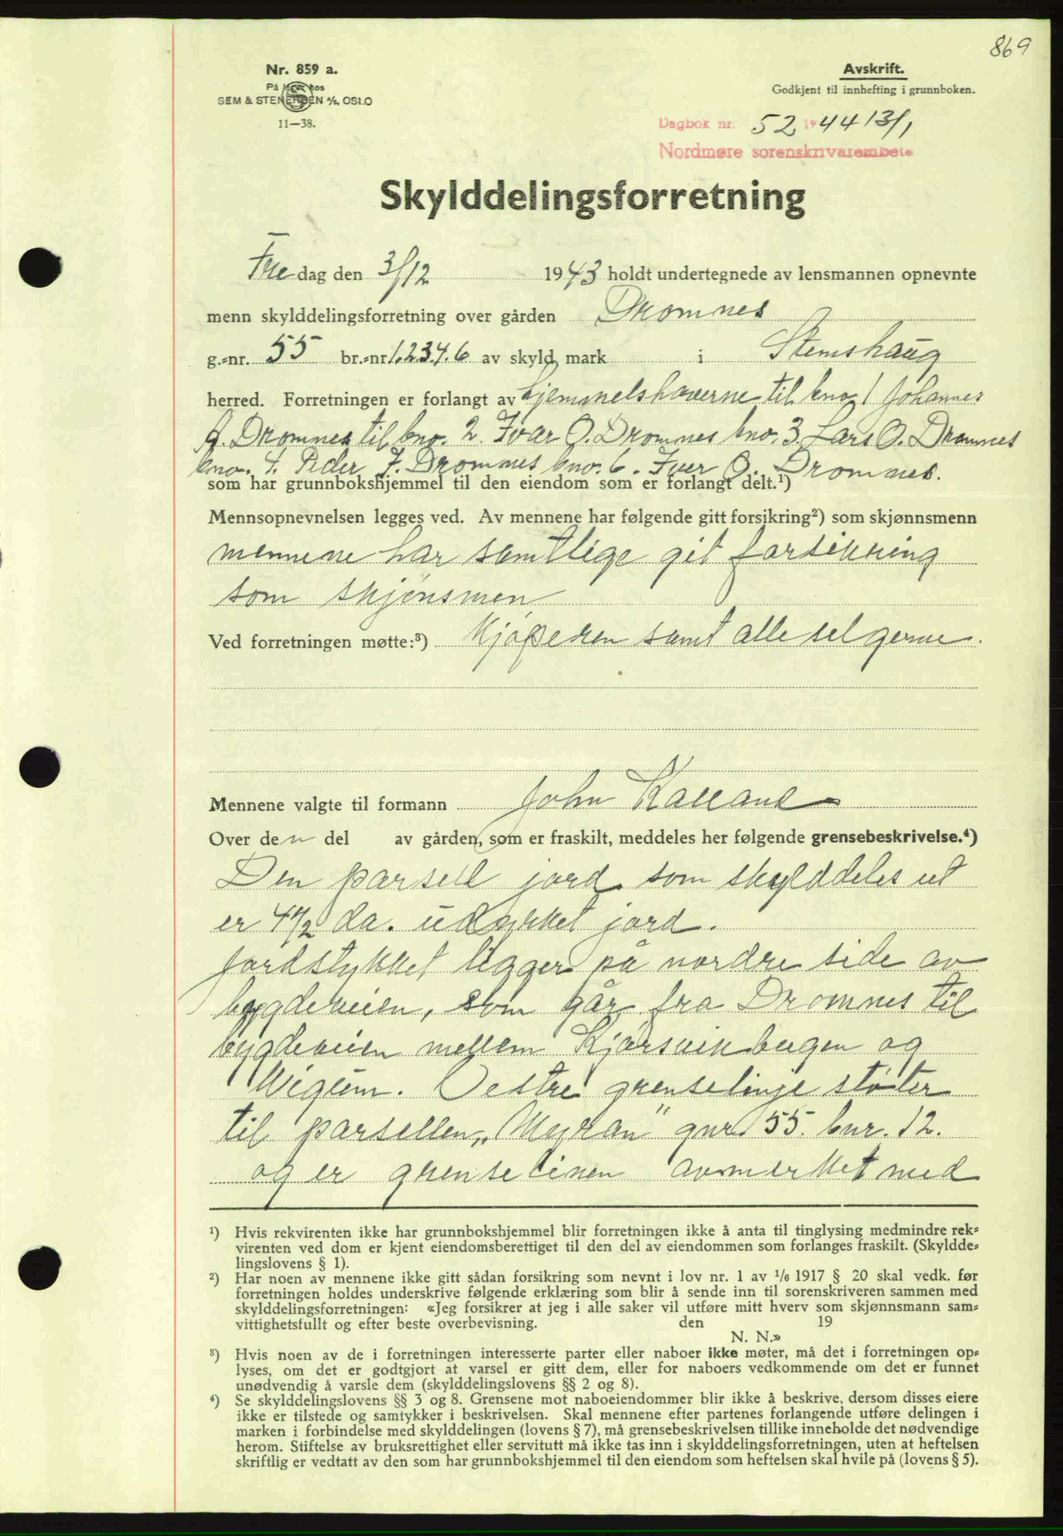 869
Nr. 859 a.
På lager hos
SEM & STENERSEN A/S, OSLO
11—38.
Avskrift.
Godkjent til innhefting i grunnboken.
Dagbok nr. 52 1944 13/1
Nordmøre sorenskrivarembete
Skylddelingsforretning
Fredag den 3/12 1943 holdt undertegnede av lensmannen opnevnte
menn skylddelingsforretning over gården Dromnes
g.=nr. 55 br.=nr 1.2.3.4.6 av skyld mark i Stemshaug
herred. Forretningen er forlangt av hjemmelshaverne til bno. 1 Johannes
J. Dromnes til bno. 2. Ivar O. Dromnes bno. 3. Lars O. Dromnes
bno. 4. Peder J. Dromnes bno. 6. Iver O. Dromnes.
som har grunnbokshjemmel til den eiendom som er forlangt delt.¹)
Mennsopnevnelsen legges ved. Av mennene har følgende gitt forsikring²) som skjønnsmenn
mennene har samtlige git forsikring
som skjønsmen
Ved forretningen møtte:³) Kjøperen samt alle selgerne.
Mennene valgte til formann John
Over den del av gården, som er fraskilt, meddeles her følgende grensebeskrivelse.⁴)
Den parsell jord som skylddeles ut
er 4½ da. udyrket jord.
Jordstykket ligger på nordre side av
bygdeveien, som går fra Dromnes til
bygdeveien mellem Kjørsvikbugen og
Vestre grenselinje støter
til parsellen „Myran" gnr. 55. bnr. 12.
og er grenselinen avmerket med
¹) Hvis rekvirenten ikke har grunnbokshjemmel blir forretningen ikke å anta til tinglysing medmindre rek=
virenten ved dom er kjent eiendomsberettiget til den del av eiendommen som forlanges fraskilt. (Skyldde=
lingslovens § 1).
²) Har noen av mennene ikke gitt sådan forsikring som nevnt i lov nr. 1 av 1/8 1917 § 20 skal vedk. før
forretningen holdes underskrive følgende erklæring som blir å sende inn til sorenskriveren sammen med
skylddelingsforretningen: «Jeg forsikrer at jeg i alle saker vil utføre mitt hverv som skjønnsmann sam=
vittighetsfullt og efter beste overbevisning. den 19
N. N.»
³) Hvis noen av de i forretningen interesserte parter eller naboer ikke møter, må det i forretningen op=
lyses, om det er godtgjort at varsel er gitt dem, eller for naboers vedkommende om det er funnet
unødvendig å varsle dem (skylddelingslovens §§ 2 og 8).
⁴) Se skylddelingslovens §§ 3 og 8. Grensene mot naboeiendommer blir ikke å beskrive, dersom disses eiere
ikke er tilstede og samtykker i beskrivelsen. Skal mennene efter partenes forlangende utføre delingen i
marken i forbindelse med skylddelingen (lovens § 7), må grensebeskrivelsen tillike inneholde det nødvendige
herom. Stiftelse av bruksrettighet eller servitutt må ikke tas inn i skylddelingsforretningen, uten at heftelsen
skriftlig er vedtatt av den som har grunnbokshjemmel til den eiendom som heftelsen skal hvile på (lovens § 5).